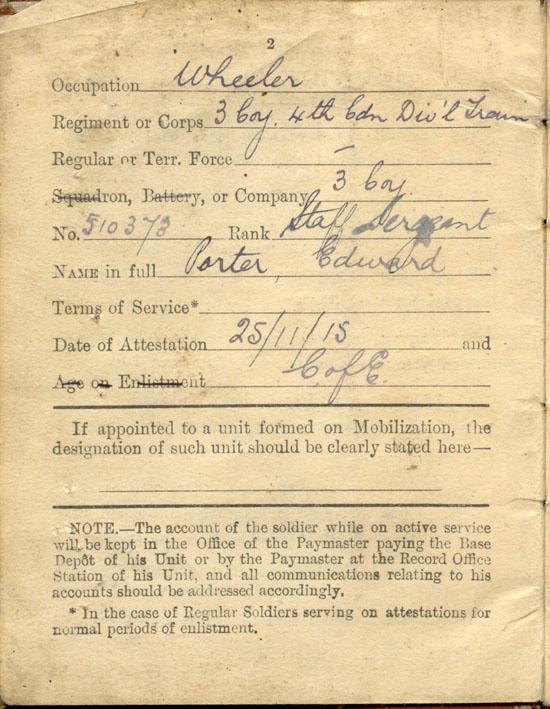 2
Occupation Wheeler
Regiment or Corps 3 Coy. 4th Cdn Div'l Train
Regular or Terr. Force –
Squadron, Battery, or Company 3 Coy.
No. 510373 Rank Staff Sergeant
NAME in full Porter, Edward
Terms of Service*
Date of Attestation 25/11/15 and
Age on Enlistment C of E.
If appointed to a unit formed on Mobilization, the
designation of such unit should be clearly stated here—
NOTE.—The account of the soldier while on active service
will be kept in the Office of the Paymaster paying the Base
Depôt of his Unit or by the Paymaster at the Record Office
Station of his Unit, and all communications relating to his
accounts should be addressed accordingly.
* In the case of Regular Soldiers serving on attestations for
normal periods of enlistment.